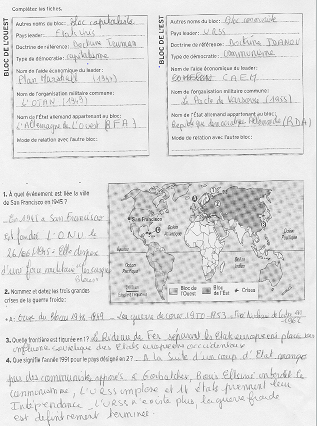 Complétez les fiches.
BLOC DE L'OUEST
Autres noms du bloc: Bloc capitaliste
Pays leader: Etats Unis
Doctrine de référence: Doctrine Truman
Type de démocratie: capitalisme
Nom de l'aide économique du leader:
Plan Marshall (1947)
Nom de l'organisation militaire commune:
L'OTAN (1949)
Nom de l'État allemand appartenant au bloc:
L'Allemagne de l'ouest (RFA)
Mode de relation avec l'autre bloc:
BLOC DE L'EST
Autres noms du bloc: Bloc communiste
Pays leader: URSS
Doctrine de référence: Doctrine JDANOV
Type de démocratie: communisme
Nom de l'aide économique du leader:
CAEM
Nom de l'organisation militaire commune:
Le Pacte de Varsovie (1955)
Nom de l'État allemand appartenant au bloc:
République Démocratique Allemande (RDA)
Mode de relation avec l'autre bloc:
1. À quel événement est liée la ville
de San Francisco en 1945 ?
a San Francisco
est fondée l'O.N.U le
26/06/1945. Elle dispose
d'une force militaire "les casques
bleus"
San Francisco
Océan Pacifique
Océan Atlantique
Océan Indien
Océan Pacifique
Bloc de l'Ouest
Bloc de l'Est
Crises
2. Nommez et datez les trois grandes
crises de la guerre froide:
1948-1949 - La guerre de Corée 1950-1953 - de Cuba en
1962
3. Quelle frontière est tiquetée en 1? Le Rideau de Fer séparant les Etats européens
soviétique des Etats européens occidentaux
4. Que signifie l'année 1991 pour le pays désigné en 2? A la suite d'un coup d'Etat manqué
par des communistes opposés à Gorbatchev, Boris Eltsine interdit le
communisme, L'URSS implose et 11 états prennent leur
Indépendance. L'URSS n'existe plus, la guerre froide
est définitivement terminée.